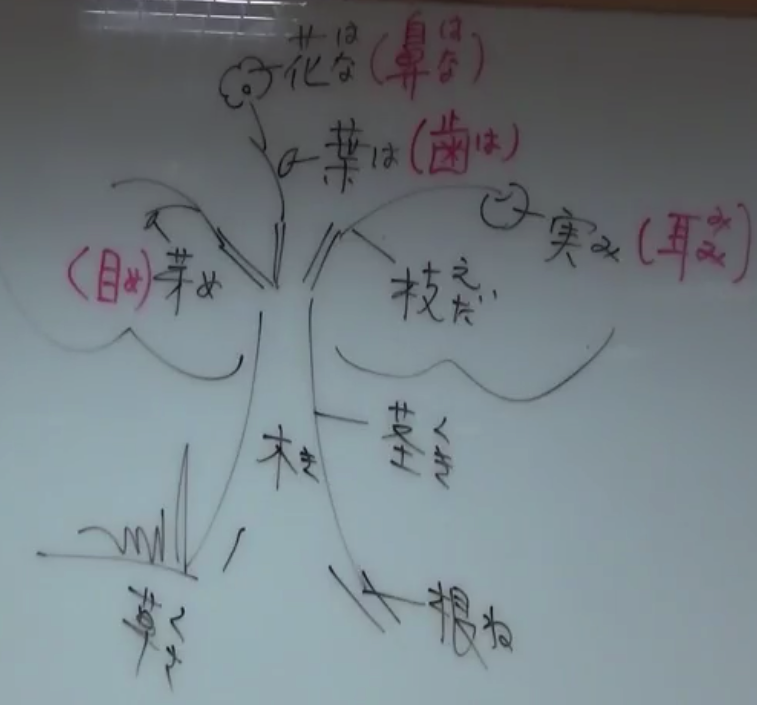 花はな(鼻はな)
葉は(歯は)
実み(耳みみ)
(目め)芽め
枝えだ
茎くき
木き
草くさ
根ね